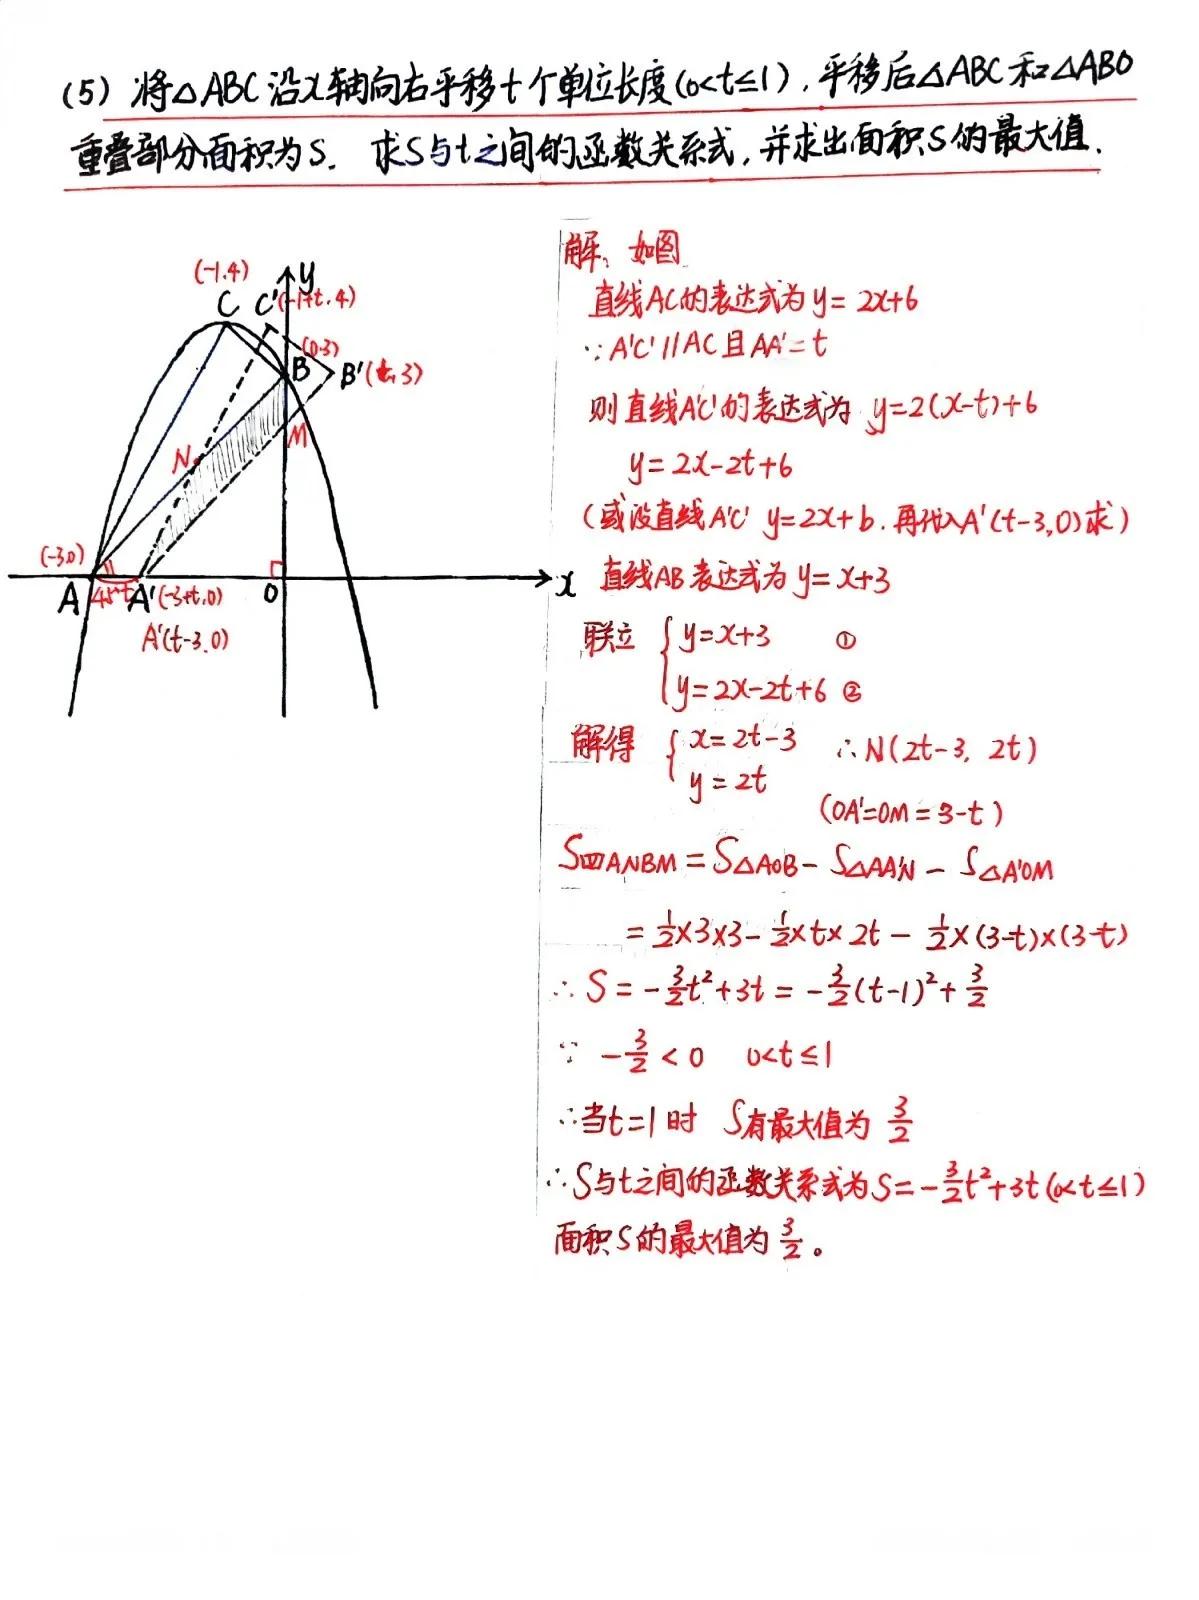 (5) 将△ABC沿x轴向右平移t个单位长度(0<t≤1),平移后△ABC和△ABO
重叠部分面积为S. 求S与t之间的函数关系式,并求出面积S的最大值.
(-1.4)
y
C
C'
(-1+t.4)
(0.3)
B
B'(t,3)
M
N
(-3.0)
A
45°
t
A'(-3+t.0)
O
x
A'(t-3.0)
解:如图
直线AC的表达式为y=2x+6
∵A'C'//AC且AA'=t
则直线A'C'的表达式为 y=2(x-t)+6
y=2x-2t+6
(或设直线A'C' y=2x+b.再代入A'(t-3,0)求)
直线AB表达式为y=x+3
联立 { y=x+3 ①
y=2x-2t+6 ②
解得 { x=2t-3 ∴N(2t-3, 2t)
y=2t
(OA'=OM=3-t)
S四ANBM=S△AOB-S△AA'N-S△A'OM
=1/2×3×3-1/2×t×2t-1/2×(3-t)×(3-t)
∴S=-3/2t²+3t=-3/2(t-1)²+3/2
∵ -3/2<0 0<t≤1
∴当t=1时 S有最大值为 3/2
∴S与t之间的函数关系式为S=-3/2t²+3t(0<t≤1)
面积S的最大值为3/2。